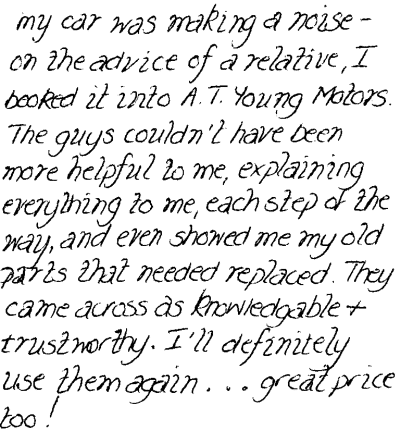 my car was making a noise -
on the advice of a relative, I
booked it into A.T. Young Motors.
The guys couldn't have been
more helpful to me, explaining
everything to me, each step of the
way, and even showed me my old
parts that needed replaced. They
came across as knowledgable +
trustworthy. I'll definitely
use them again . . . great price
too!